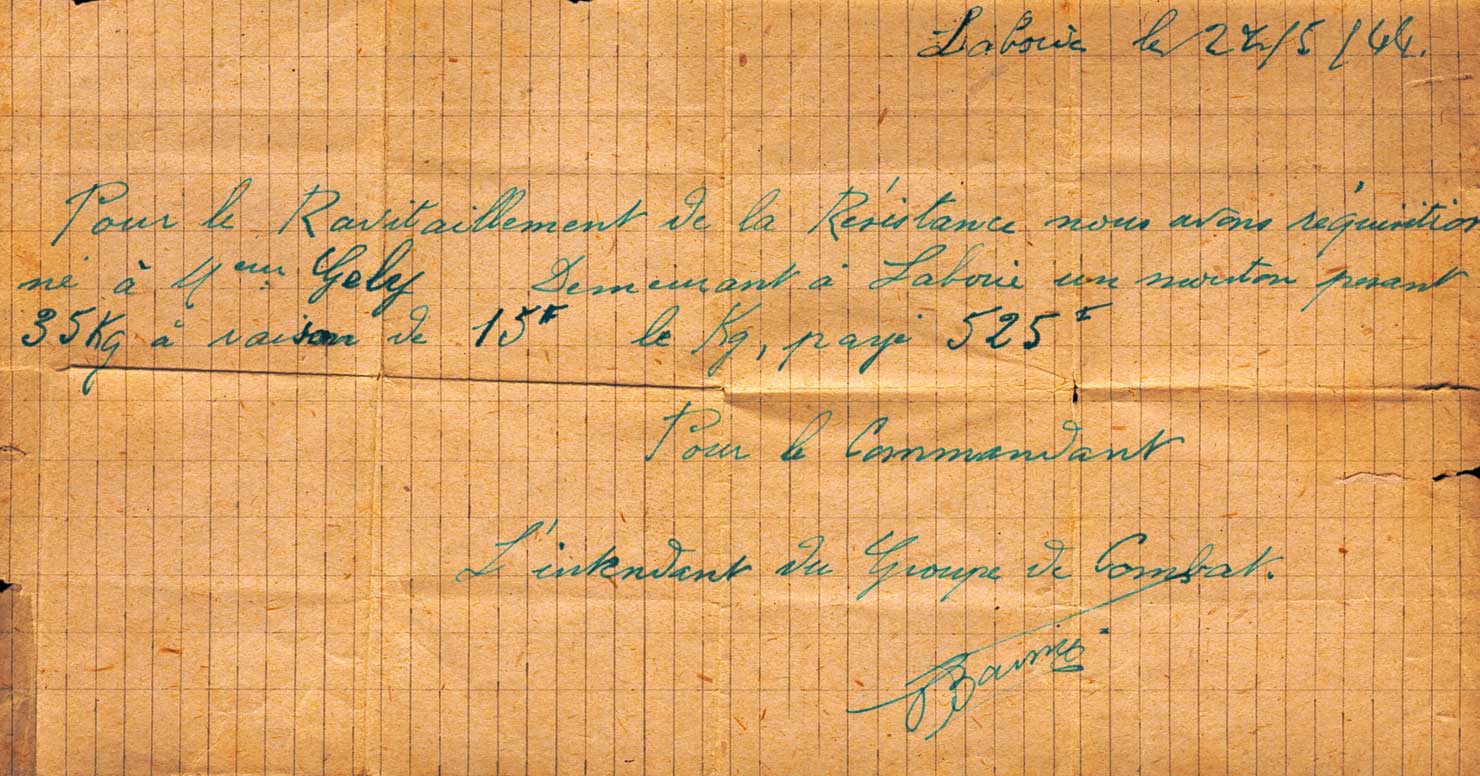 Laborie le 24/5/44.
Pour le Ravitaillement de la Résistance nous avons réquisition
né à Meur Gely Demeurant à Laborie un mouton pesant
35Kg à raison de 15F le Kg, payé 525F
Pour le Commandant
L'intendant du Groupe de Combat.